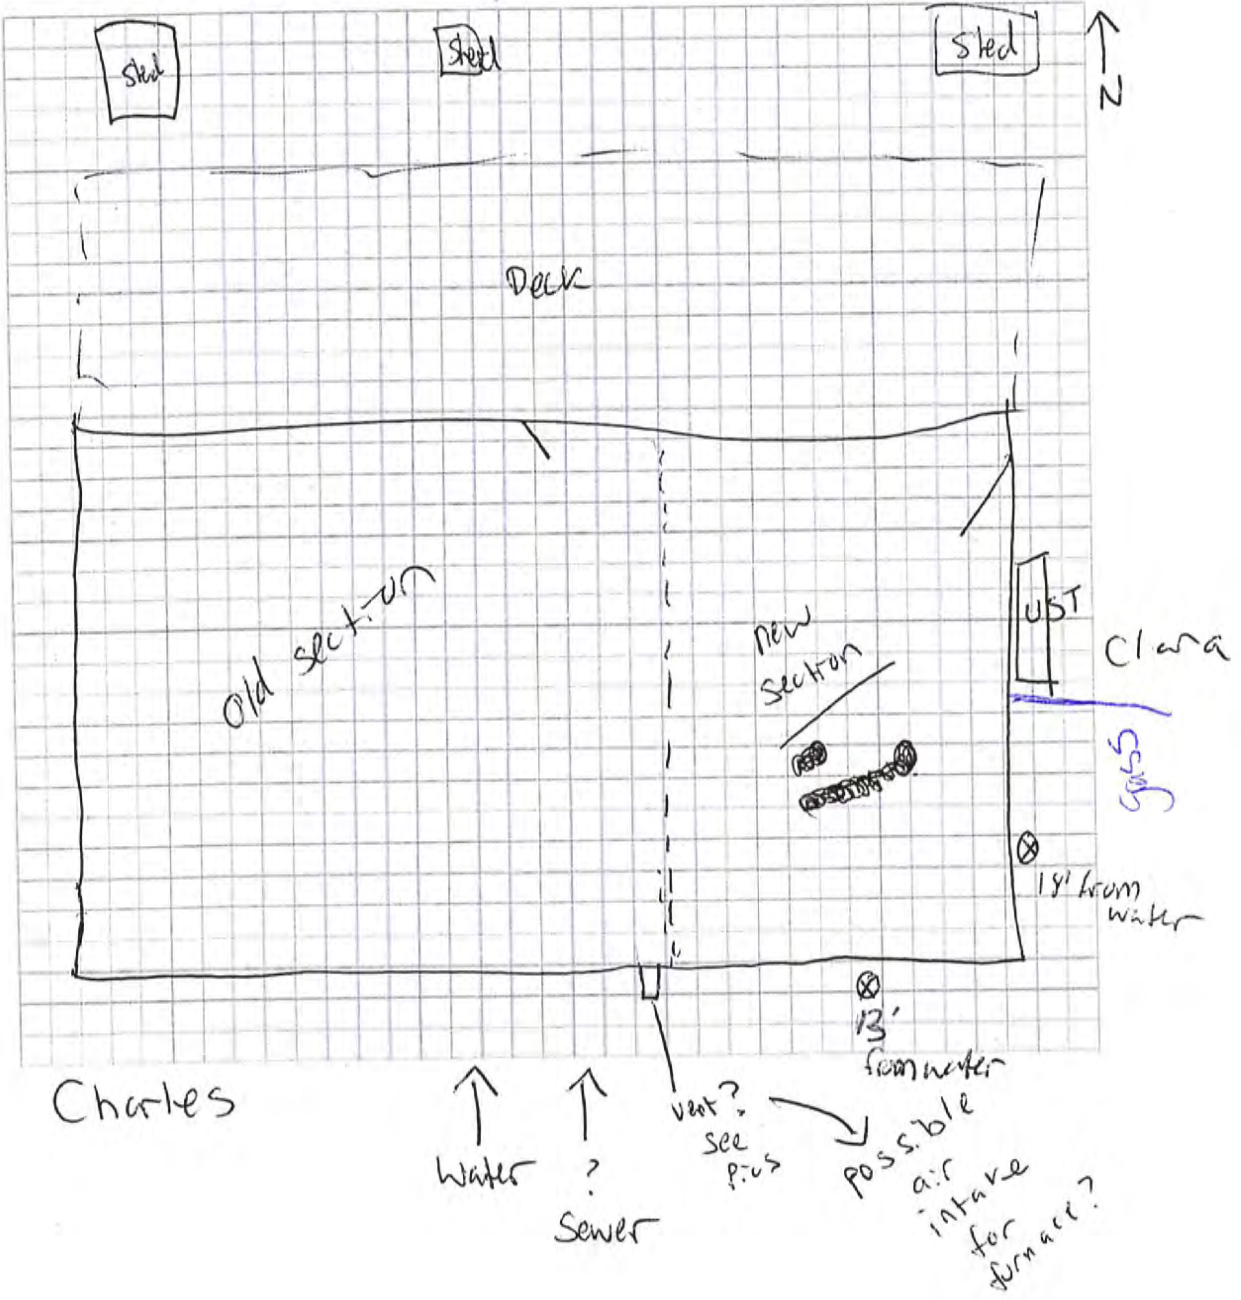 Shed
Shed
Shed
N
Deck
Old section
new
section
UST
Clara
gas
18' from
water
13'
from water
Charles
Water
?
Sewer
vent?
see
pics
possible
air
intake
for
furnace?